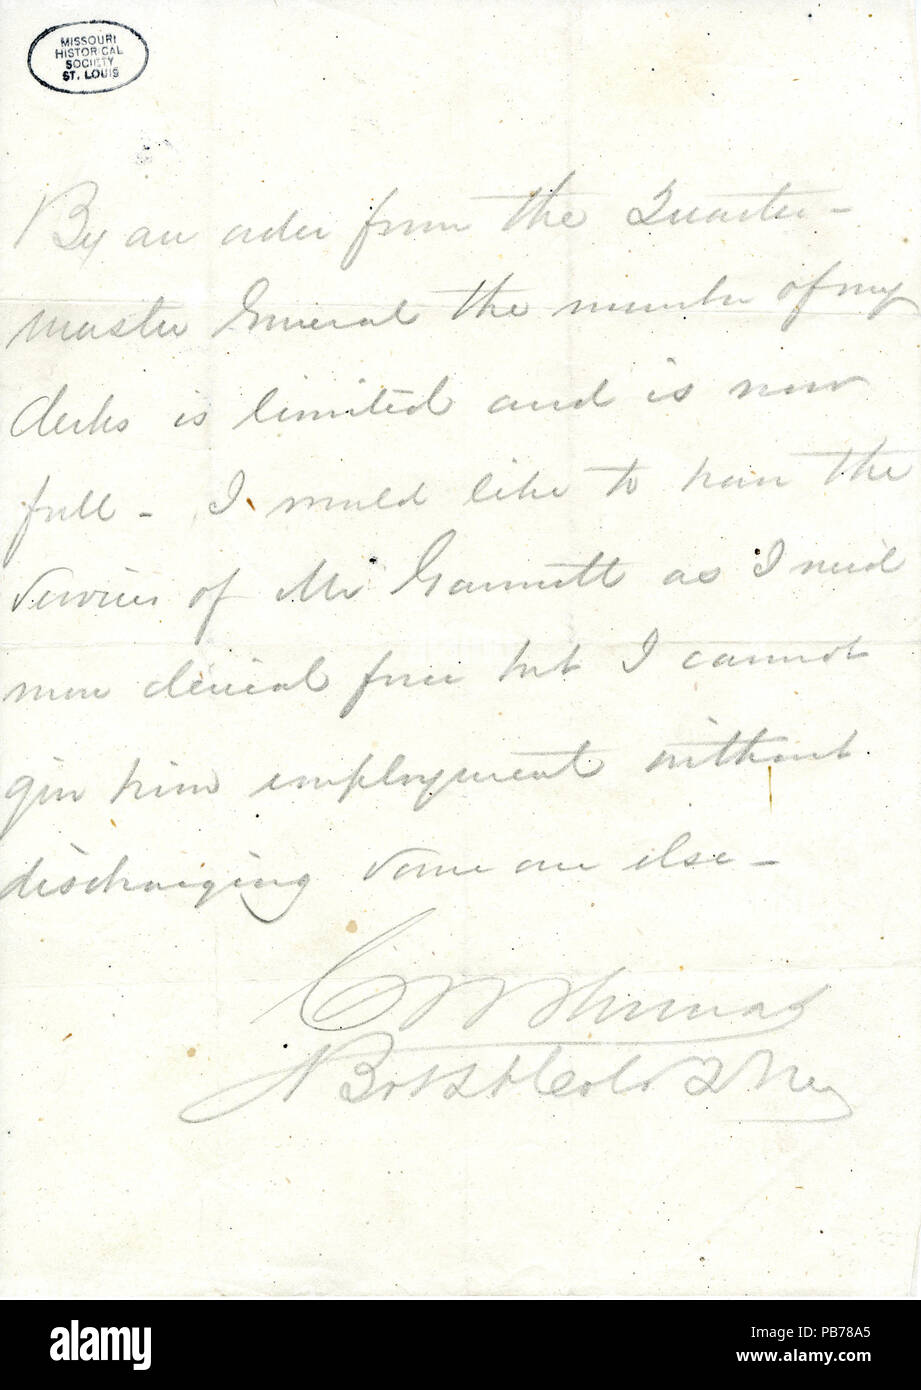 MISSOURI
HISTORICAL
SOCIETY
ST. LOUIS
By an order from the Quarter-
master General the number of my
clerks is limited and is now
full - I would like to have the
services of Mr Gannett as I need
more clerical force but I cannot
give him employment without
discharging some one else -
Thomas
Bvt Col
alamy
Image ID: PB78A5
www.alamy.com